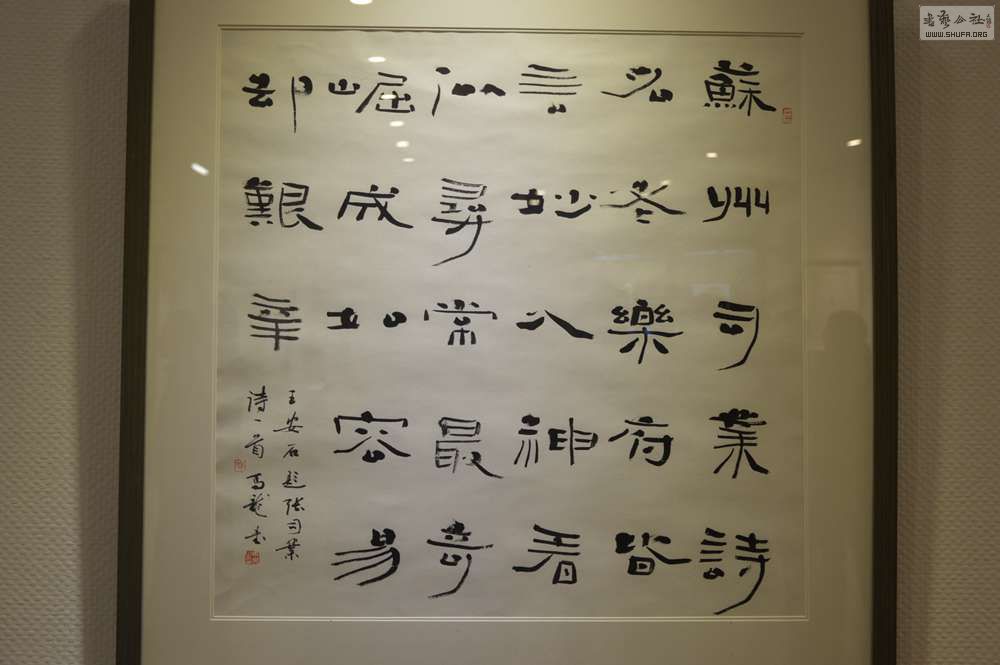 蘇州司業詩
名老樂府皆
言妙入神看
似尋常最奇
崛成如容易
却艱辛
王安石题张司業
诗一首
書藝公社
WWW.SHUFA.ORG